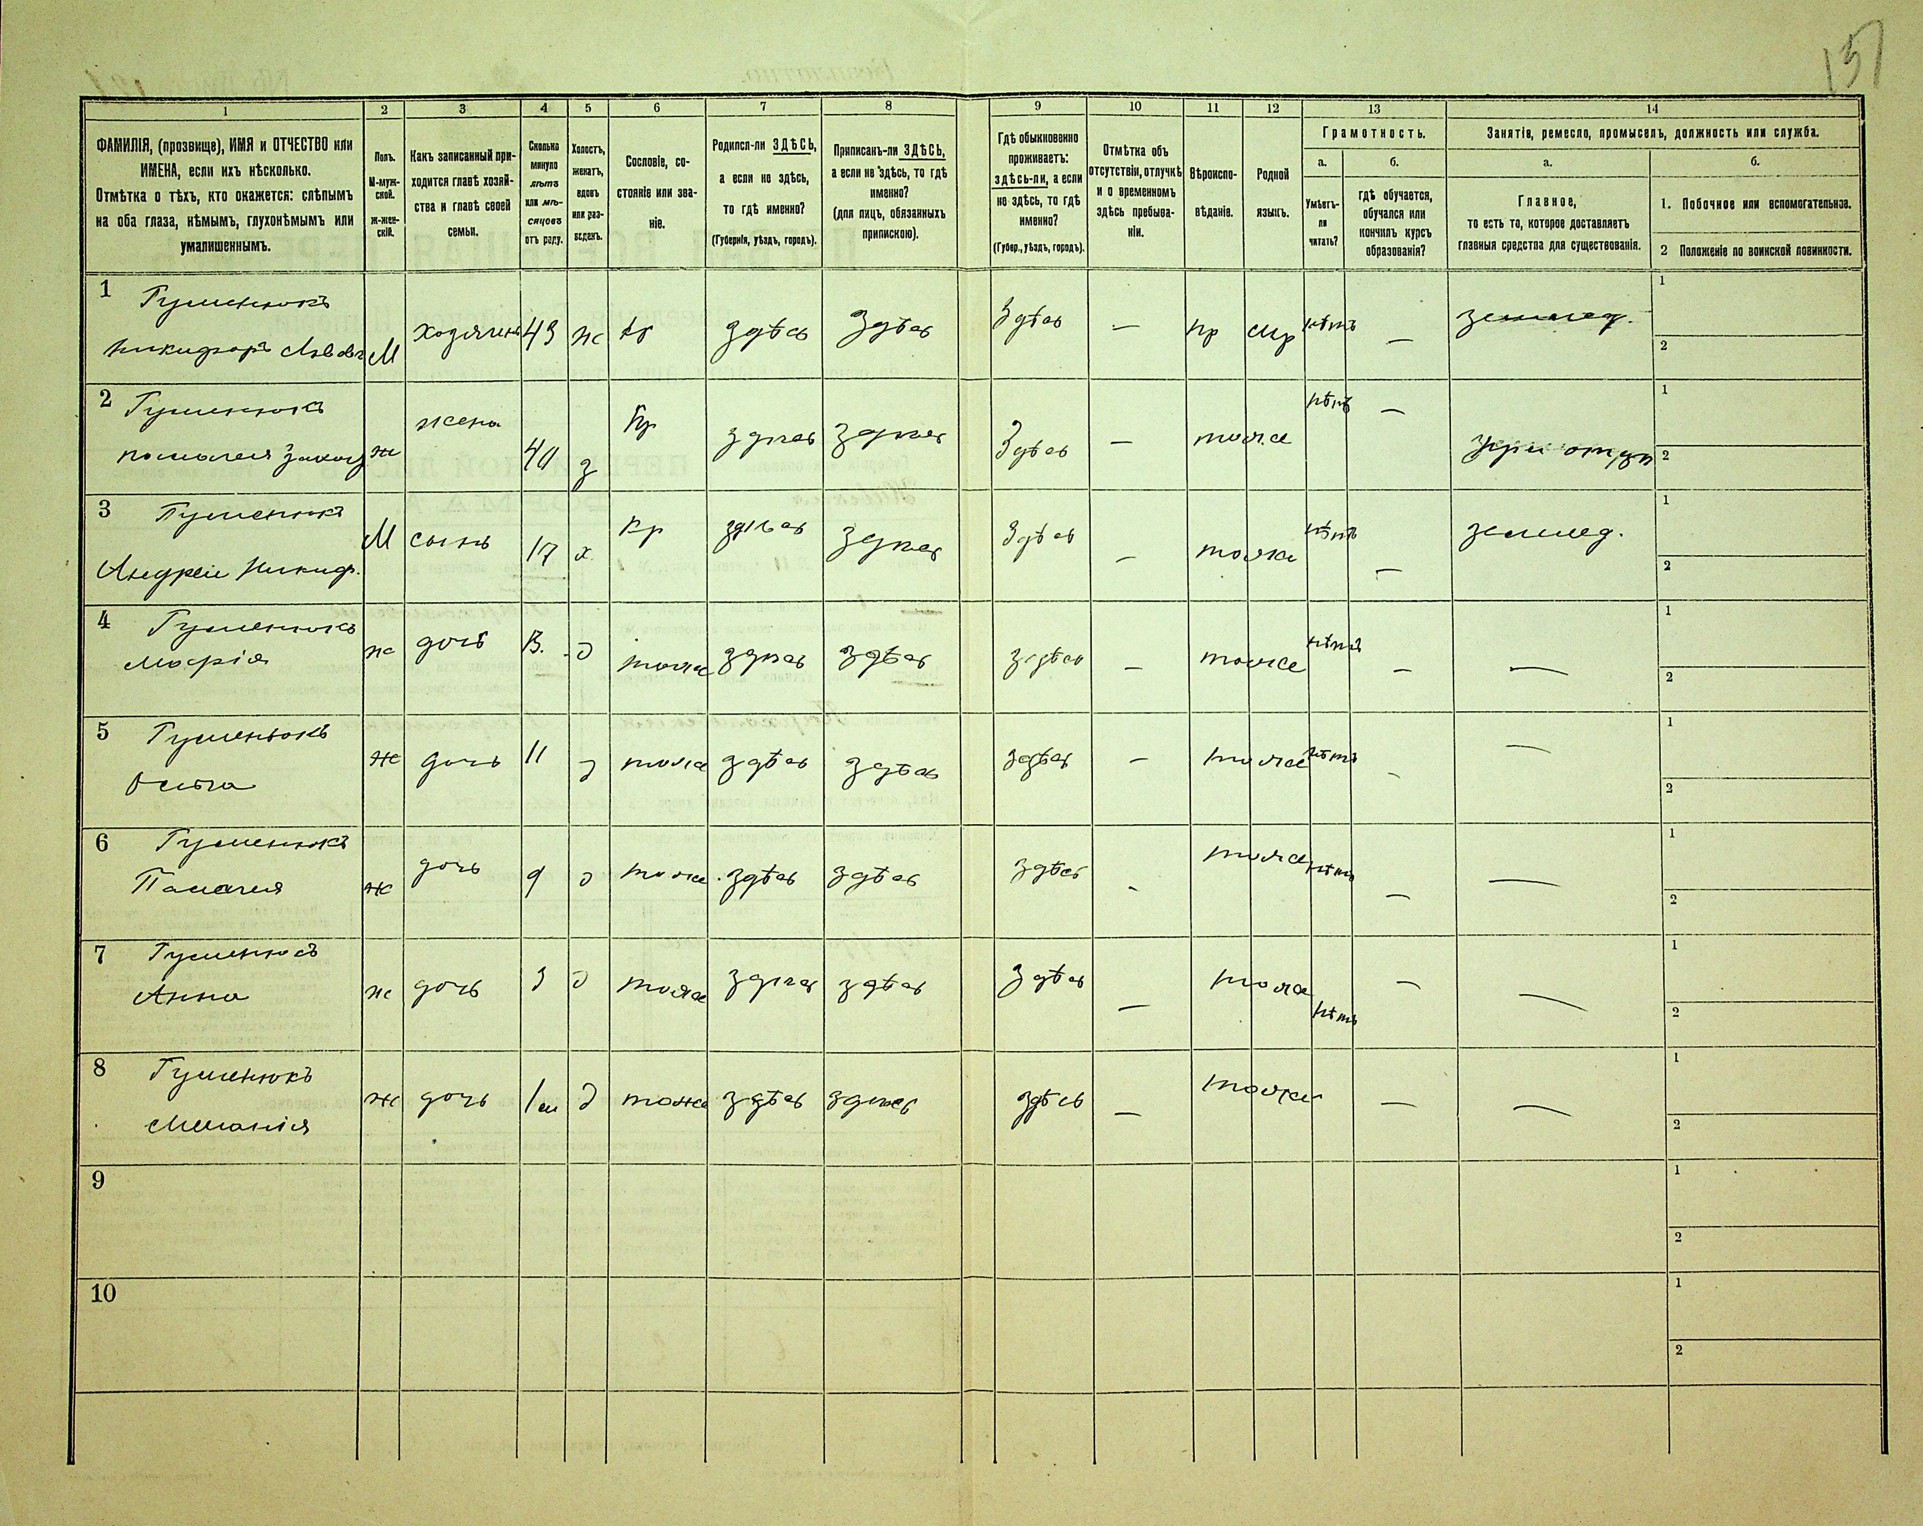 151
1 2 3 4 5 6 7 8 9 10 11 12 13 14
ФАМИЛІЯ, (прозвище), ИМЯ и ОТЧЕСТВО или
ИМЕНА, если ихъ нѣсколько.
Отмѣтка о тѣхъ, кто окажется: слѣпымъ
на оба глаза, нѣмымъ, глухонѣмымъ или
умалишеннымъ.
Полъ.
М-муж-
ской.
ж-жен-
скій.
Какъ записанный при-
ходится главѣ хозяй-
ства и главѣ своей
семьи.
Сколько
минуло
лѣтъ
или мѣ-
сяцовъ
отъ роду.
Холостъ,
женатъ,
вдовъ
или раз-
веденъ.
Сословіе, со-
стояніе или зва-
ніе.
Родился-ли ЗДѢСЬ,
а если не здѣсь,
то гдѣ именно?
(Губернія, уѣздъ, городъ).
Приписанъ-ли ЗДѢСЬ,
а если не здѣсь, то гдѣ
именно?
(для лицъ, обязанныхъ
припискою).
Гдѣ обыкновенно
проживаетъ:
здѣсь-ли, а если
не здѣсь, то гдѣ
именно?
(Губер., уѣздъ, городъ).
Отмѣтка объ
отсутствіи, отлучкѣ
и о временномъ
здѣсь пребыва-
ніи.
Вѣроиспо-
вѣданіе.
Родной
языкъ.
Грамотность.
а.
Умѣетъ-
ли
читать?
б.
гдѣ обучается,
обучался или
кончилъ курсъ
образованія?
Занятіе, ремесло, промыселъ, должность или служба.
а.
Главное,
то есть то, которое доставляетъ
главныя средства для существованія.
б.
1. Побочное или вспомогательное.
2 Положеніе по воинской повинности.
1 Гуменюкъ
Никифоръ Львовъ М хозяинъ 43 ж кр здѣсь здѣсь здѣсь — пр мр нѣтъ — землед. 1
2
2 Гуменюкъ
ж жена 40 з кр здѣсь здѣсь здѣсь — тоже нѣтъ — при 1
2
3 Гуменюкъ
Андрей Никиф. М сынъ 17 х кр здѣсь здѣсь здѣсь — тоже нѣтъ — землед. 1
2
4 Гуменюкъ
Марія ж дочь 13. д тоже здѣсь здѣсь здѣсь — тоже нѣтъ — — 1
2
5 Гуменюкъ
Ольга ж дочь 11 д тоже здѣсь здѣсь здѣсь — тоже нѣтъ — — 1
2
6 Гуменюкъ
Палагея ж дочь 9 д тоже здѣсь здѣсь здѣсь — тоже нѣтъ — — 1
2
7 Гуменюкъ
Анна ж дочь 3 д тоже здѣсь здѣсь здѣсь — тоже нѣтъ — — 1
2
8 Гуменюкъ
Меланія ж дочь 1м д тоже здѣсь здѣсь здѣсь — тоже — — 1
2
9 1
2
10 1
2